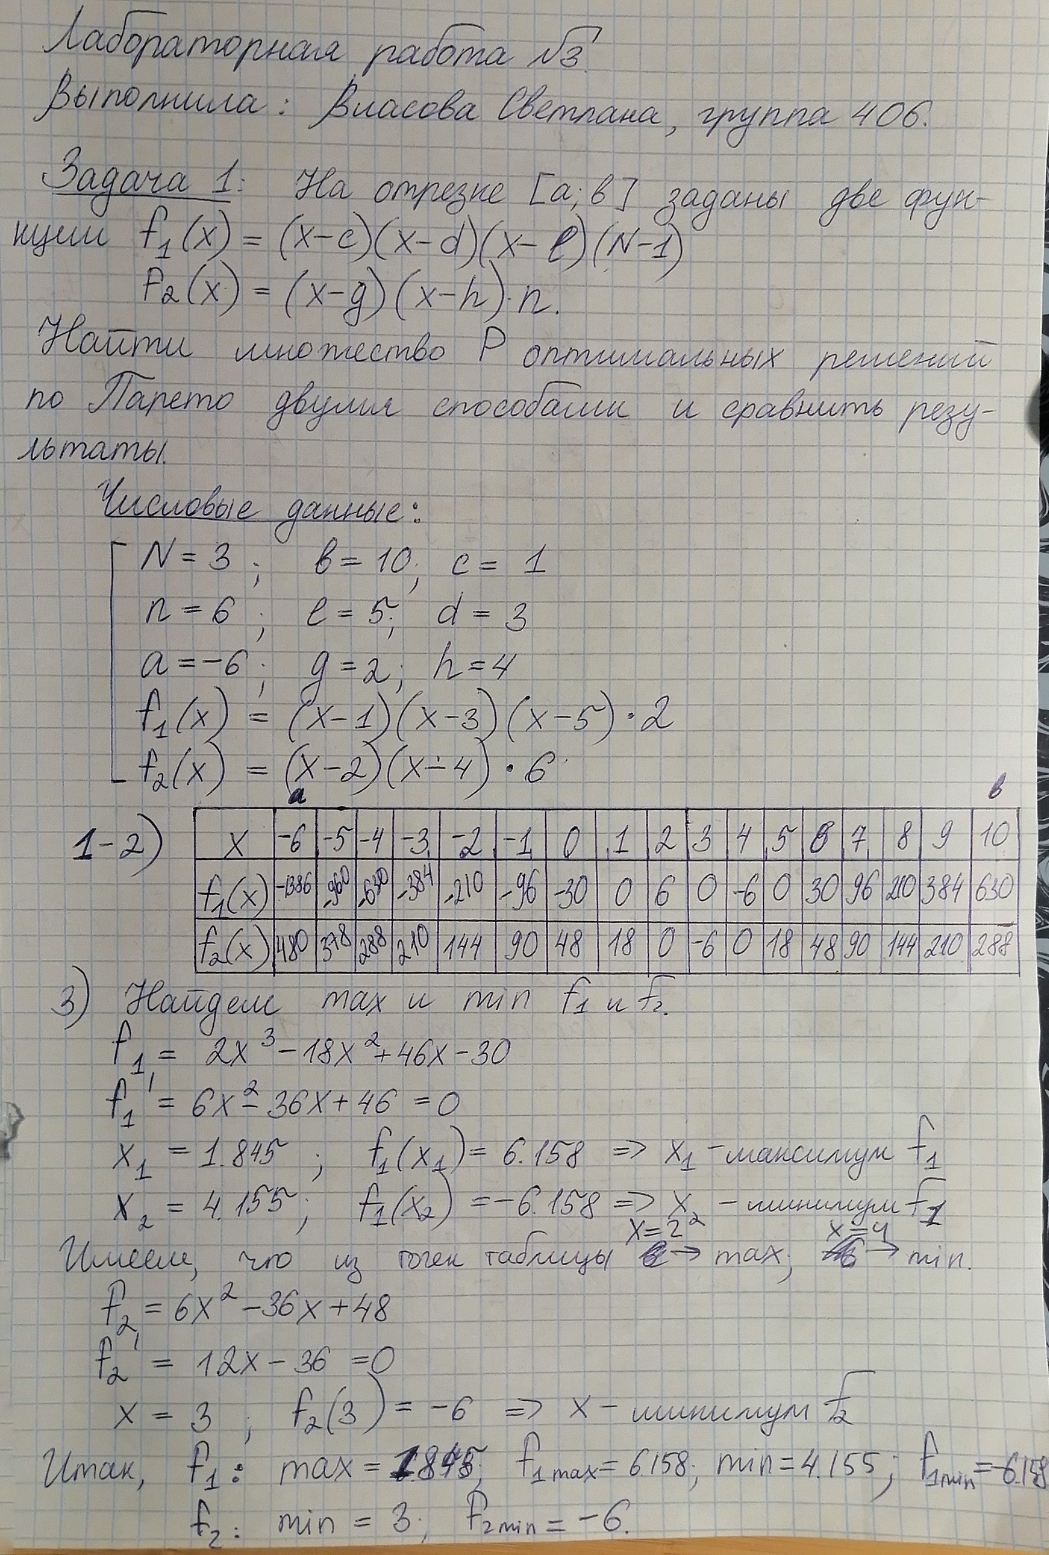 Лабораторная работа №3.
Выполнила: Власова Светлана, группа 406.
Задача 1: На отрезке [a; в] заданы две фун-
нции f₁(x) = (x-c)(x-d)(x-e)(N-1)
f₂(x) = (x-g)(x-h)·n.
Найти множество P оптимальных решений
по Парето двумя способами и сравнить резу-
льтаты.
Числовые данные:
N = 3 ; в = 10; c = 1
n = 6 ; e = 5; d = 3
a = -6; g = 2; h = 4
f₁(x) = (x-1)(x-3)(x-5)·2
f₂(x) = (x-2)(x-4)·6
a в
1-2) x -6 -5 -4 -3 -2 -1 0 1 2 3 4 5 6 7 8 9 10
f₁(x) -1386 -960 -630 -384 -210 -96 -30 0 6 0 -6 0 30 96 210 384 630
f₂(x) 480 378 288 210 144 90 48 18 0 -6 0 18 48 90 144 210 288
3) Найдем max и min f₁ и f₂.
f₁ = 2x³-18x²+46x-30
f₁' = 6x²-36x+46 = 0
x₁ = 1.845 ; f₁(x₁) = 6.158 => x₁ - максимум f₁
x₂ = 4.155 ; f₁(x₂) = -6.158 => x₂ - минимум f₁
x=2 x=4
Имеем, что из точек таблицы → max; → min.
f₂ = 6x²-36x+48
f₂' = 12x-36 = 0
x = 3 ; f₂(3) = -6 => x - минимум f₂
Итак, f₁: max = 1.845; f₁max = 6.158; min = 4.155; f₁min = -6.158
f₂: min = 3; f₂min = -6.